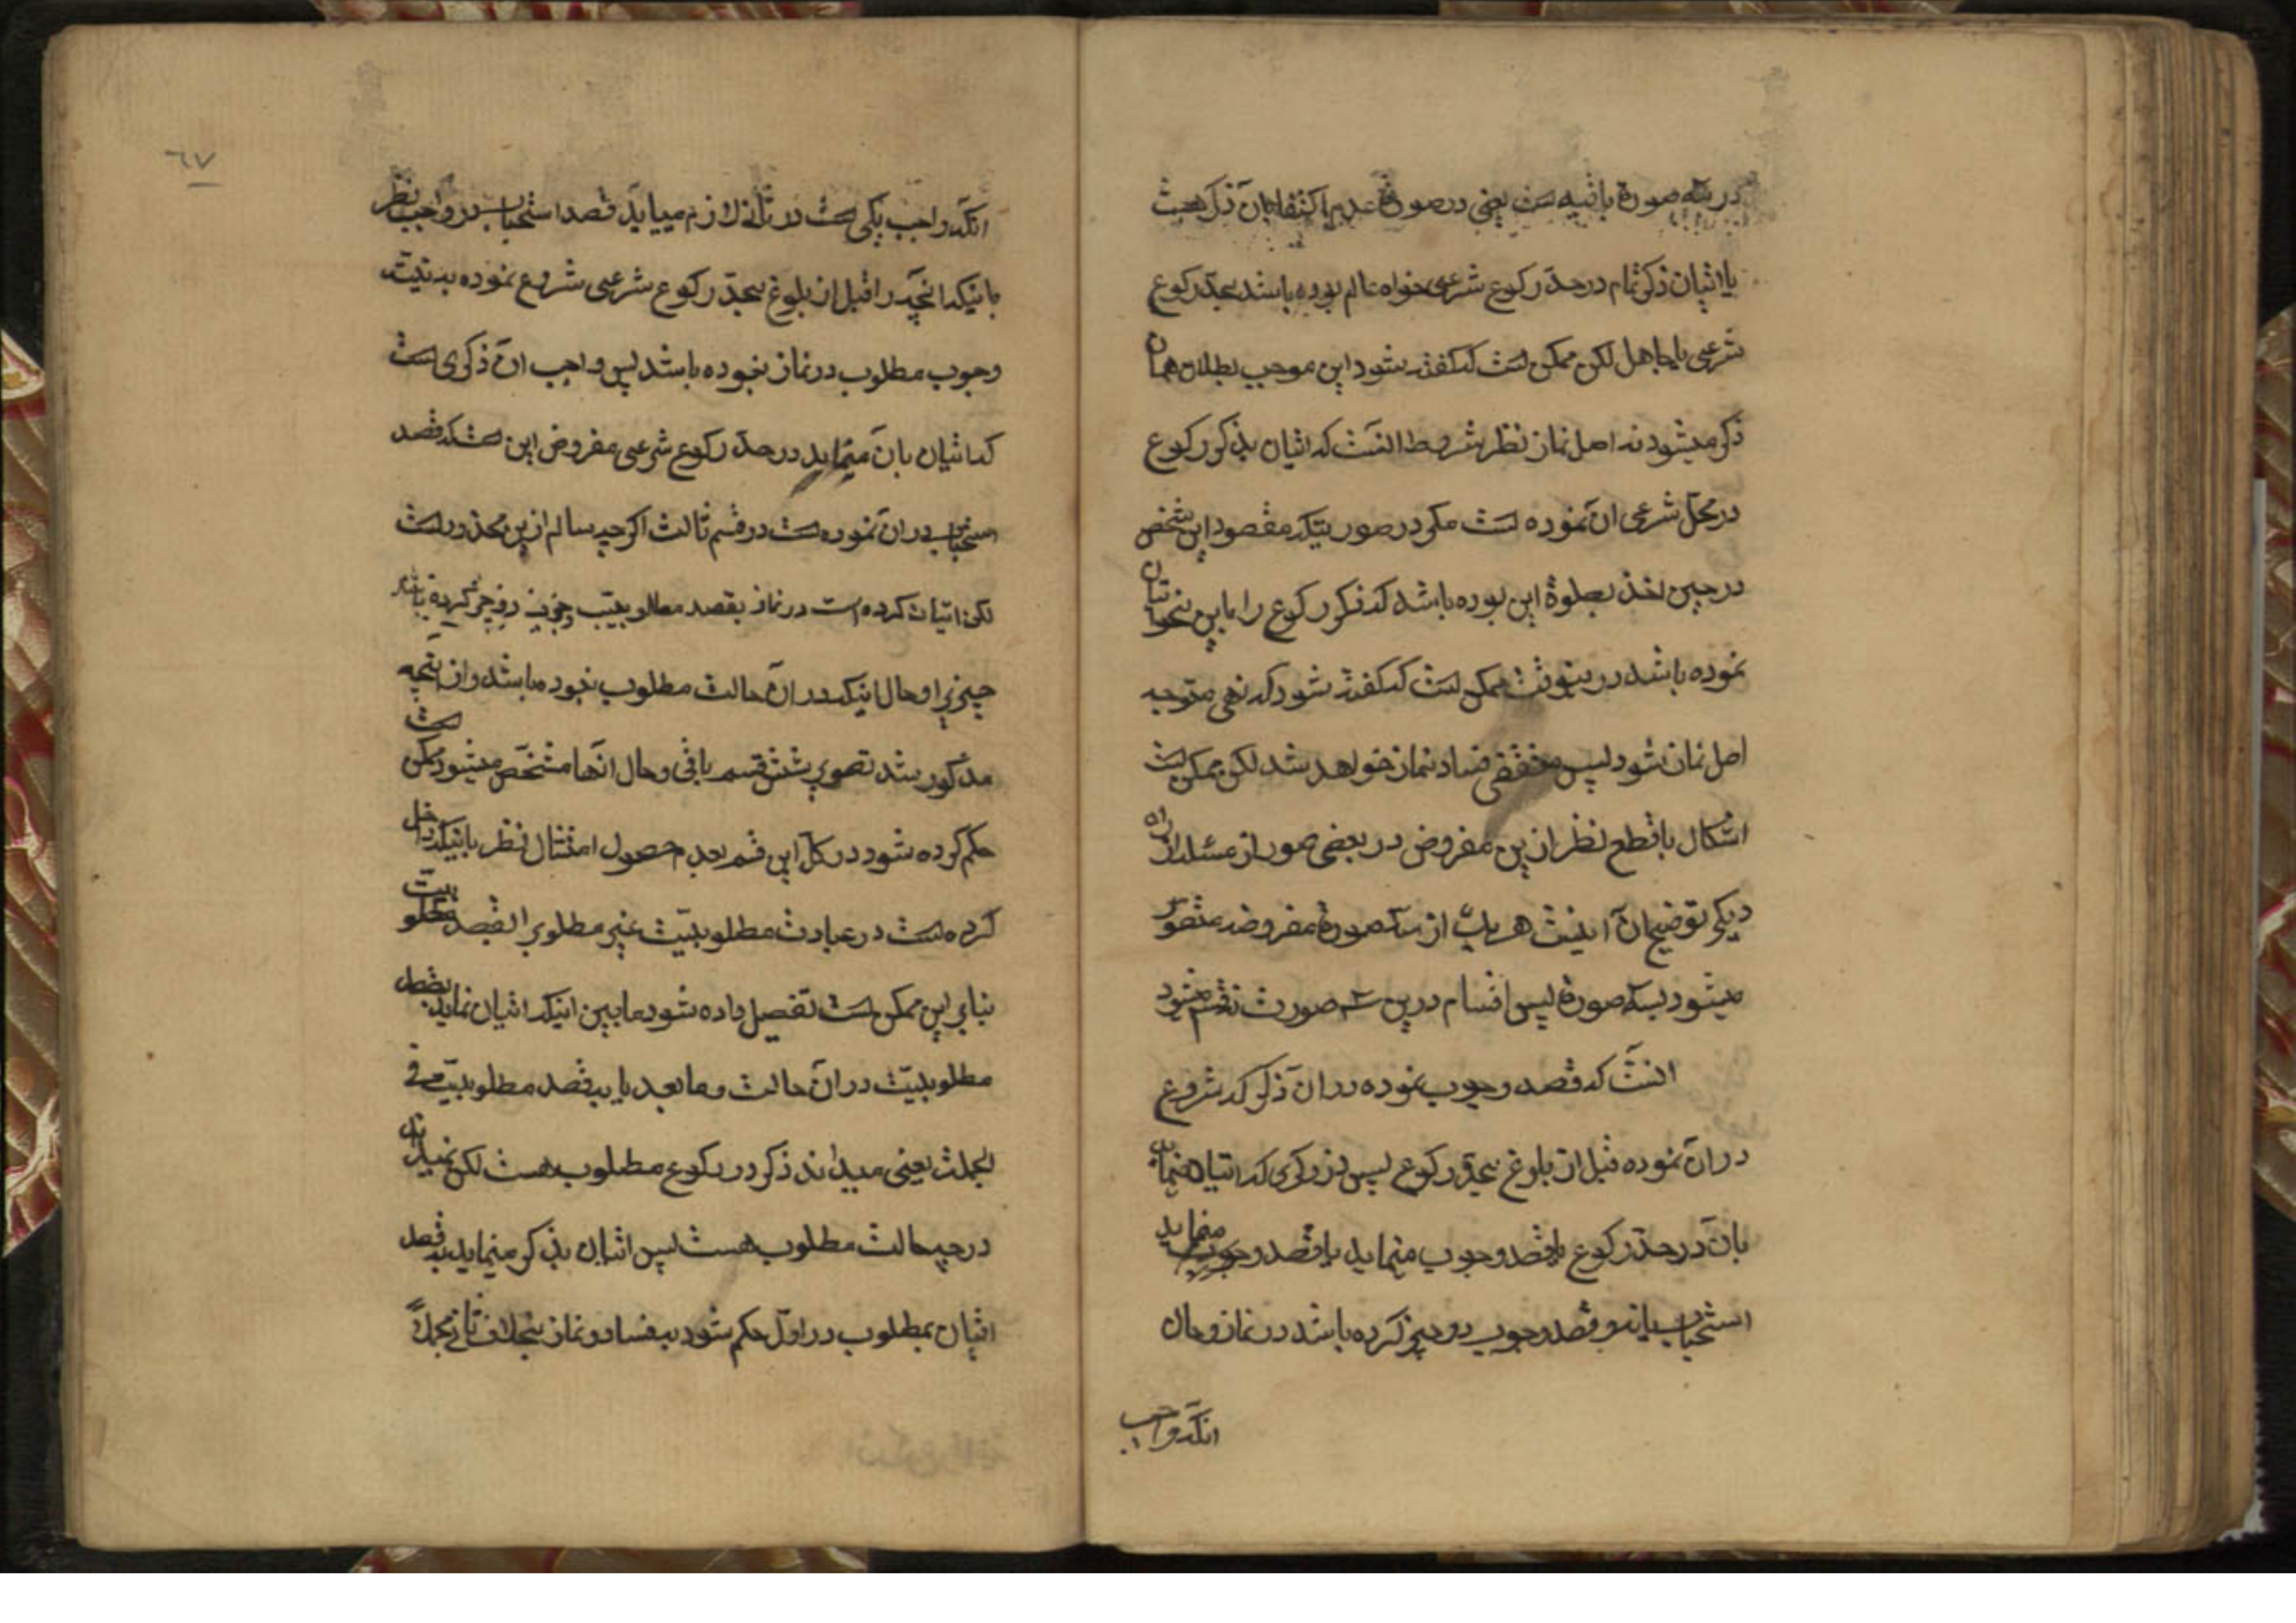 در سه صورة باقیه است یعنی در صورة عدم اکتفا بان ذکر است
یا اتیان ذکر تمام در حد رکوع شرعی خواه عالم بوده باشد بحد رکوع
شرعی یا جاهل لکن ممکن است که گفته شود این موجب بطلان همان
ذکر میشود نه اصل نماز نظر بشروط انست که اتیان بذکر رکوع
در محل شرعی ان نموده است مکر در صورتیکه مقصود این شخص
در حین اخذ بصلوة این بوده باشد که ذکر رکوع را باین نحو اتیان
نموده باشد درینوقت ممکن است که گفته شود که نهی متوجه
اصل نماز شود پس مقتضی فساد نماز خواهد شد لکن ممکن است
اشکال با قطع نظر ازین مفروض در بعضی صور از مسئله از راه
دیکر توضیح ان اینست هر یک از سه صورة مفروضه متصور
میشود بسه صورة پس اقسام درین سه صورت نه قسم میشود
انست که قصد وجوب نموده در ان ذکر که شروع
در ان نموده قبل از بلوغ بحد رکوع پس در ذکری که اتیان مینماید
بان در حد رکوع یا قصد وجوب مینماید یا قصد مینماید
استحباب یا نه و قصد وجوب دو چیز کرده باشد در نماز و حال
انکه واجب
٦٧
انکه واجب یکی است در ثانی لازم میاید قصد استحباب در واجب نظر
باینکه انچه را قبل از بلوغ بحد رکوع شرعی شروع نموده به نیت
وجوب مطلوب در نماز نبوده باشد پس واجب ان ذکری است
که اتیان بان مینماید در حد رکوع شرعی مفروض این است که قصد
استحباب در ان نموده است در قسم ثالث اکر چه سالم ازین محذور است
لکن اتیان کرده است در نماز بقصد مطلوبیت
چیزی را و حال اینکه در ان حالت مطلوب نبوده باشد و از انچه
مذکور شد تصویر شش قسم باقی و حال انها مشخص میشود ممکن است
حکم کرده شود در کل این قسم بعدم حصول امتثال نظر باینکه داخل
کرده است در عبادت مطلوبیت غیر مطلوبرا بقصد مطلوبیت
بنابر این ممکن است تفصیل داده شود ما بین اینکه اتیان نماید بقصد
مطلوبیت در ان حالت و ما بعد یا بقصد مطلوبیت فی
الجملة یعنی میداند ذکر در رکوع مطلوب هست لکن نمیداند
در چه حالت مطلوب هست پس اتیان بذکر مینماید بقصد
اتیان بمطلوب در اول حکم شود بفساد نماز بخلاف ثانی مجملاً